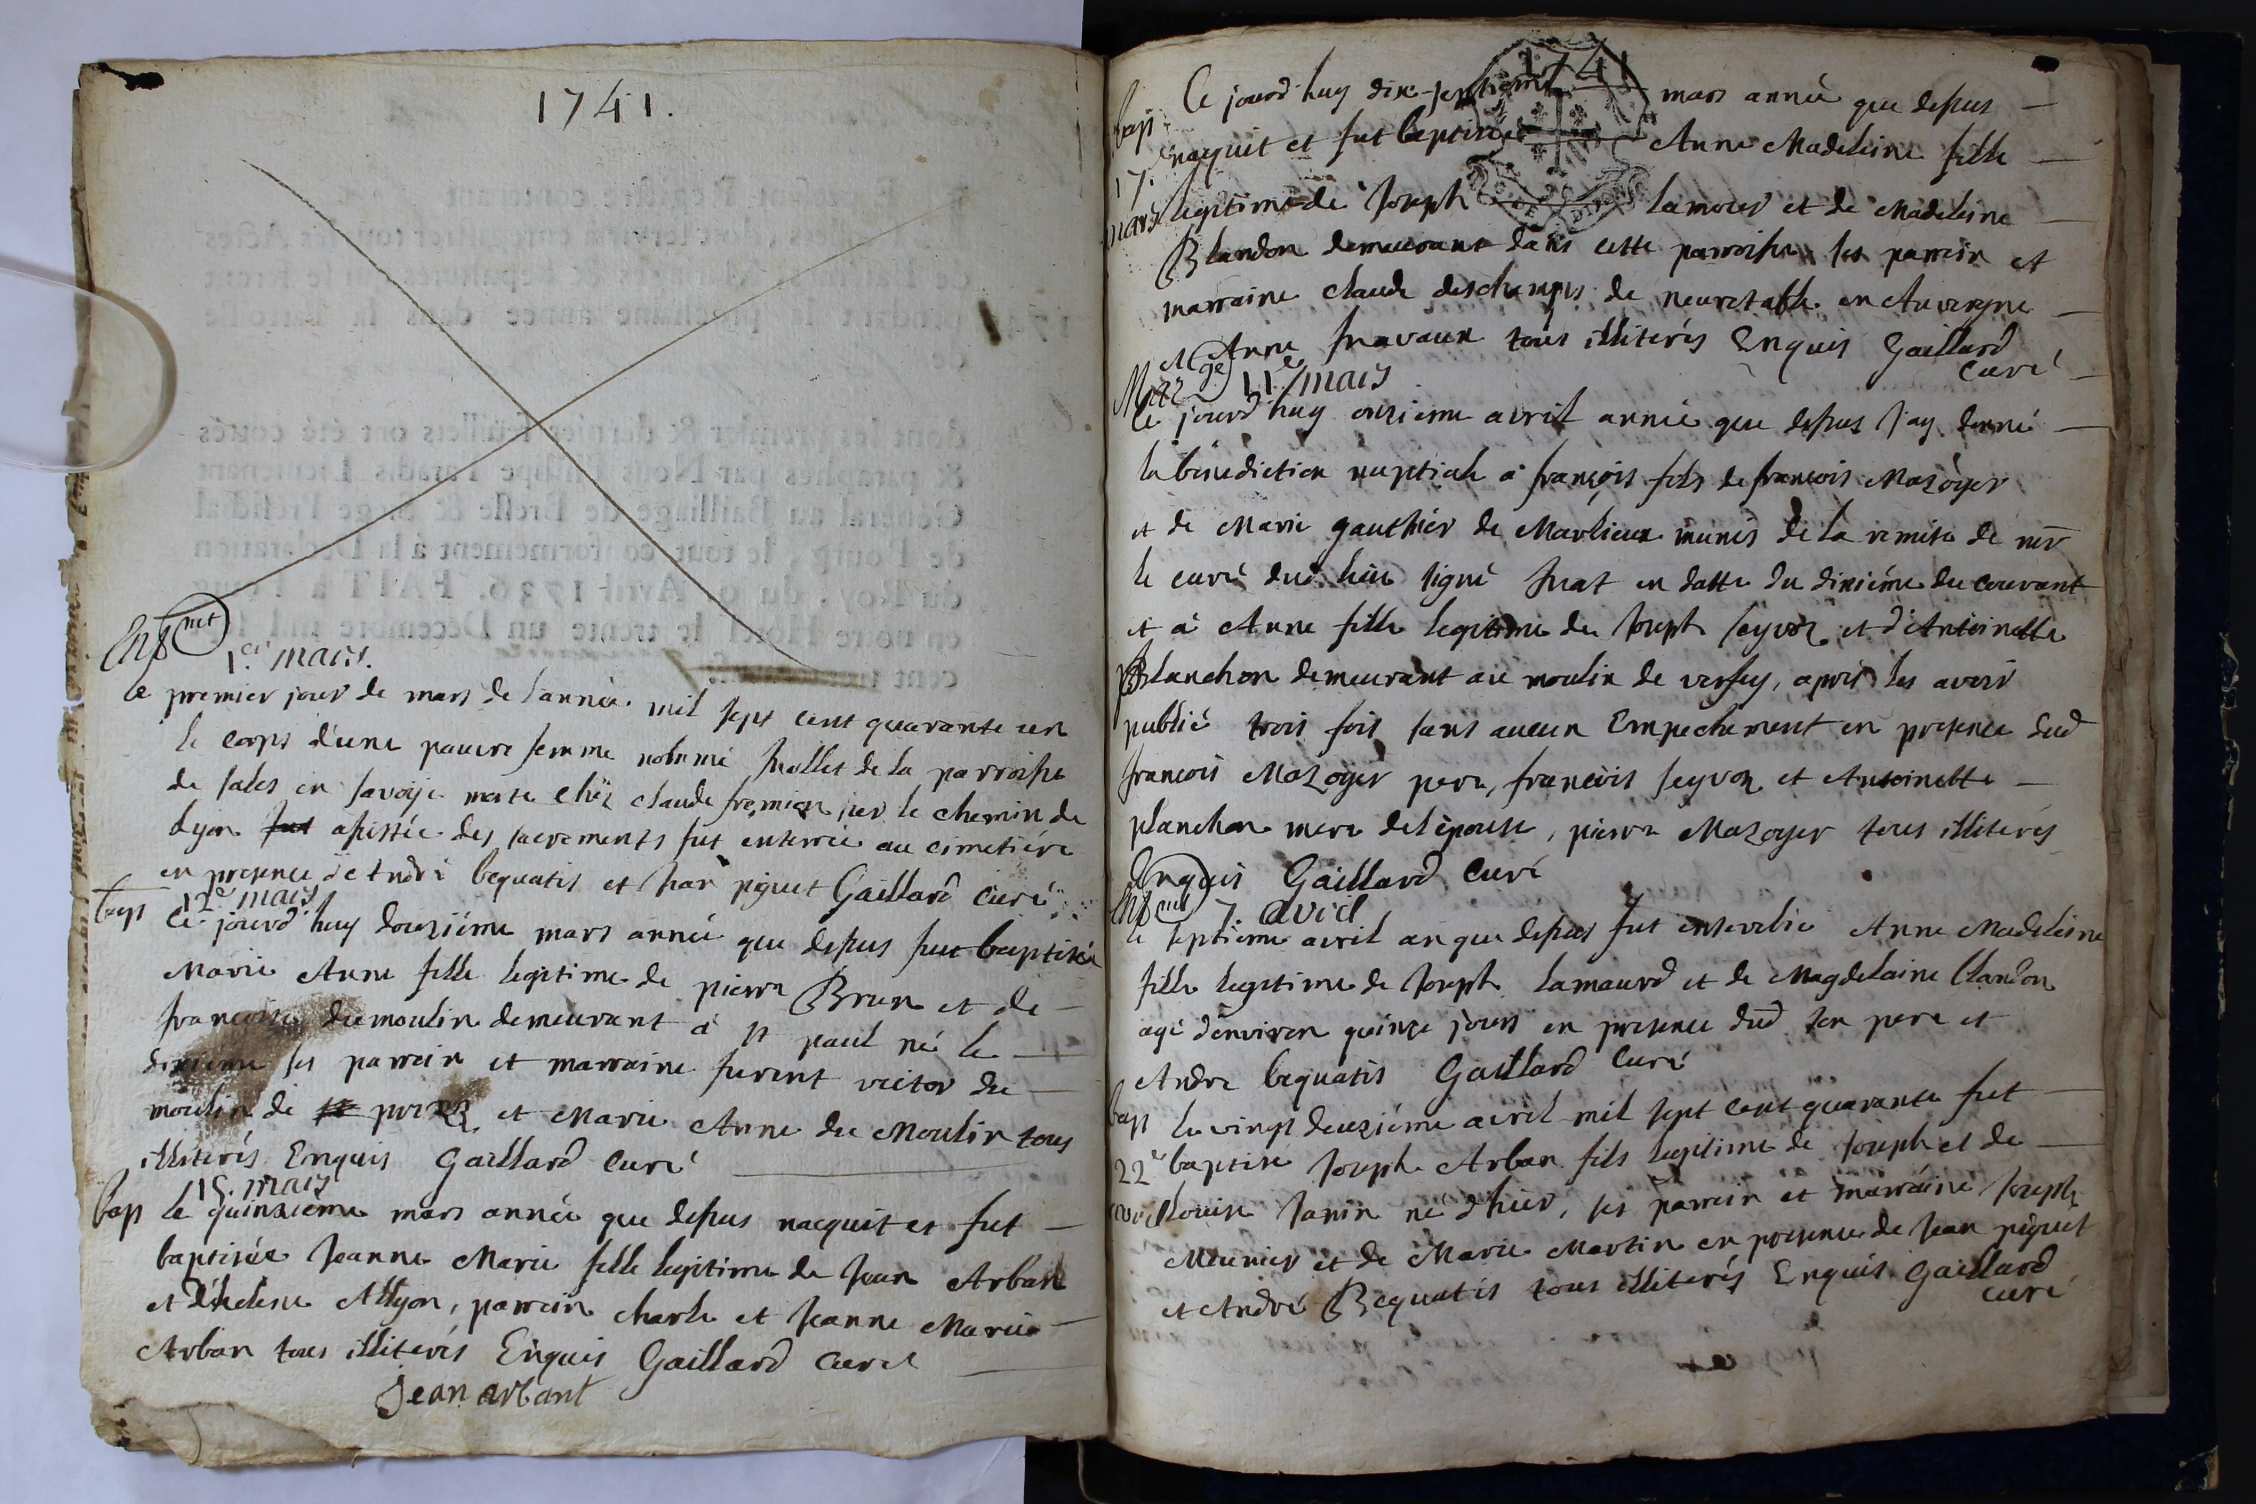 1741.
Ent
met
1er mars.
Le premier jour de mars de l'année mil sept cent quarante un
le corps d'une pauvre femme nommé Mollet de la parroisse
de sales en savoÿe morte chez claude fremion sur le chemin de
Lyon fut assistée des sacrements fut enterrée au cimetiére
en presence d'André bequatis et Jean piguet Gaillard curé
bap 12e mars
Ce jourd'huy douziéme mars année que dessus fut baptisée
Marie Anne fille legitime de pierre Brun et de
françoise du moulin demeurant a st paul né le
dixieme ses parrein et marraine furent victor du
moulin de et Marie Anne du Moulin tous
illiterés Enquis Gaillard curé
bap 15. mars
Le quinzieme mars année que dessus nacquit et fut
baptisée Jeanne Marie fille legitime de Jean Arban
et d'helene Allyon, parrein charle et Jeanne Marie
Arban tous illiterés Enquis Gaillard curé
Jean arbant
1741
bap 17. mars
Ce jourd'huy dix-septieme mars année que dessus
nacquit et fut baptisée Anne Madeleine fille
legitime de Joseph Lamour et de Madeleine
Blandon demeurant dans cette parroisse, ses parrein et
marraine claude deschamps de neuretable en Auvergne
et Anne travaux tous illiterés Enquis Gaillard
curé
Mar
ge 11e mars
Ce jourd'huy onzieme avril année que dessus J'ay donné
la bénediction nuptiale a françois fils de francois Mazoyer
et de Marie gauthier de Marlieux munis de la remise de mr
le curé dud lieu signé Juat en datte du dixiéme du courant
et a Anne fille legitime de Joseph seyvoz et d'Antoinette
planchon demeurant au moulin de versey, apres les avoir
publié trois fois sans aucun Empechement en presence dud
françois Mazoyer pere, françois seyvoz et Antoinette
planchon mere de l'épouse, pierre Mazoyer tous illiterés
Enquis Gaillard Curé
Ent
met 7. avril
Le septieme avril an que dessus fut ensevelie Anne Madeleine
fille legitime de Joseph Lamourd et de Magdelaine Clandon
agé d'environ quinze jours en presence dud son pere et
Andre bequatis Gaillard Curé
bap 22e avril
Le vingt deuziéme avril mil sept cent quarante fut
baptise Joseph Arban fils legitime de Joseph et de
Louise Janin né d'hier, ses parrein et marraine Joseph
Meunier et de Marie Martin en presence de Jean piguet
et André Bequatis tous illiterés Enquis Gaillard
curé